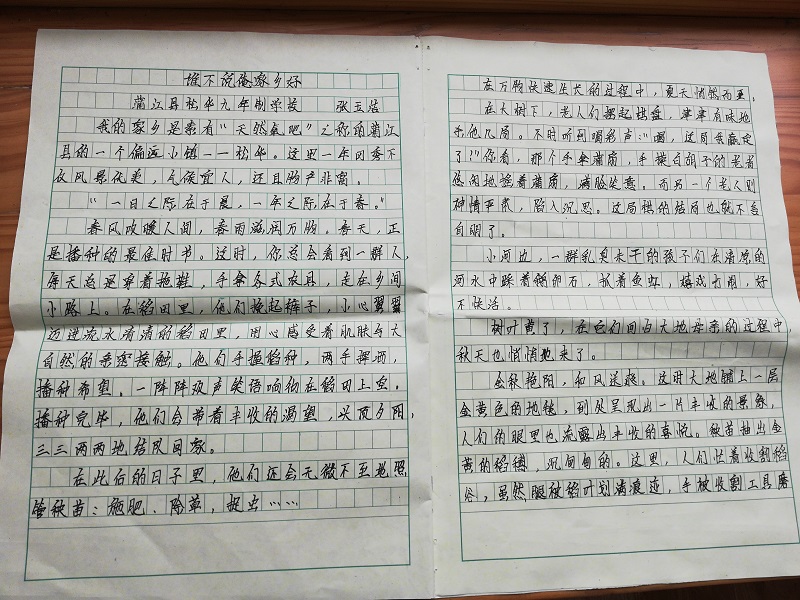 谁不说俺家乡好
蒲江县松华九年制学校 张玉洁
我的家乡是素有“天然氧吧”之称的蒲江
县的一个偏远小镇——松华。这里一年四季不
仅风景优美,气候宜人,还且物产非富。
“一日之际在于晨,一年之际在于春。”
春风吹暖人间,春雨滋润万物。春天,正
是播种的最佳时节。这时,你总会看到一群人,
每天总是穿着拖鞋,手拿各式农具,走在乡间
小路上。在稻田里,他们挽起裤子,小心翼翼
迈进流水清清的稻田里,用心感受着肌肤与大
自然的亲密接触。他们手握稻种,两手挥动,
播种希望。一阵阵欢声笑语响彻在稻田上空。
播种完毕,他们会带着丰收的渴望,头顶夕阳,
三三两两地结队回家。
在此后的日子里,他们还会无微不至地照
管秧苗:施肥、除草,捉虫……
在万物快速生长的过程中,夏天悄然而至。
在大树下,老人们摆起棋盘,津津有味地
杀他几局。不时听到喝彩声:“圃,这局我赢定
了!”你看,那个手拿蒲扇,手摸白胡子的老者
悠闲地摇着蒲扇,满脸笑意。而另一个老人则
神情严肃,陷入沉思。这局棋的结局也就不言
自明了。
小河边,一群乳臭未干的孩子们在清凉的
河水中踩着鹅卵石,抓着鱼虾,嬉戏打闹,好
不快活。
树叶黄了,在它们回归大地母亲的过程中,
秋天也悄悄地来了。
金秋艳阳,和风送爽。这时大地铺上一层
金黄色的地毯,到处呈现出一片丰收的景象,
人们的眼里也流露出丰收的喜悦。秧苗抽出金
黄的稻穗,沉甸甸的。这里,人们忙着收割稻
谷,虽然腿被稻叶划满痕迹,手被收割工具磨